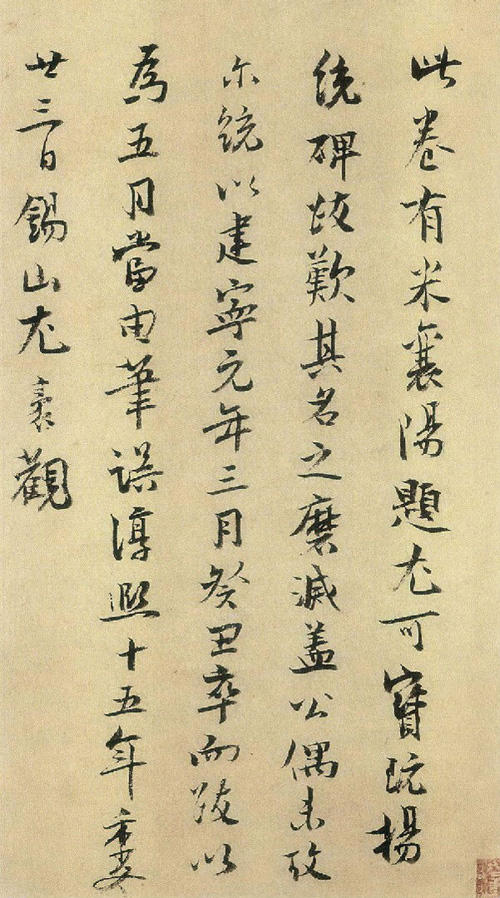 此卷有米襄陽題尤可寶玩楊
統碑跋歎其名之磨滅蓋公偶未攷
尓統以建寧元年三月癸丑卒而跋以
為五月當由筆誤淳熙十五年季夏
廿三日錫山尤袤觀